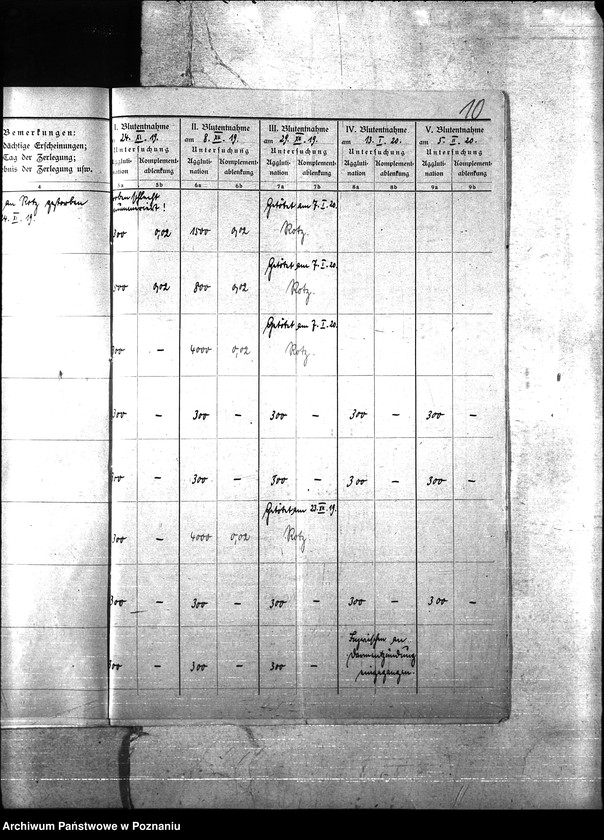 10
Bemerkungen:
dächtige Erscheinungen;
Tag der Zerlegung;
ebnis der Zerlegung usw.
4
an Rotz gestorben
I. Blutentnahme
24. XI. 19.
Untersuchung
Aggluti-
nation
Komplement-
ablenkung
5a 5b
II. Blutentnahme
am 8. XII. 19.
Untersuchung
Aggluti-
nation
Komplement-
ablenkung
6a 6b
III. Blutentnahme
am 29. XII. 19.
Untersuchung
Aggluti-
nation
Komplement-
ablenkung
7a 7b
IV. Blutentnahme
am 13. I. 20.
Untersuchung
Aggluti-
nation
Komplement-
ablenkung
8a 8b
V. Blutentnahme
am 5. II. 20.
Untersuchung
Aggluti-
nation
Komplement-
ablenkung
9a 9b
Getötet am 7. I. 20.
0,02 1500 0,02 Rotz.
Getötet am 7. I. 20.
0,02 800 0,02 Rotz.
Getötet am 7. I. 20.
– 4000 0,02 Rotz.
300 – 300 – 300 – 300 – 300 –
300 – 300 – 300 – 300 – 300 –
Getötet am 23. XII. 19.
300 – 4000 0,02 Rotz.
300 – 300 – 300 – 300 – 300 –
Inzwischen an
Darmentzündung
eingegangen.
300 – 300 – 300 –
Archiwum Państwowe w Poznaniu